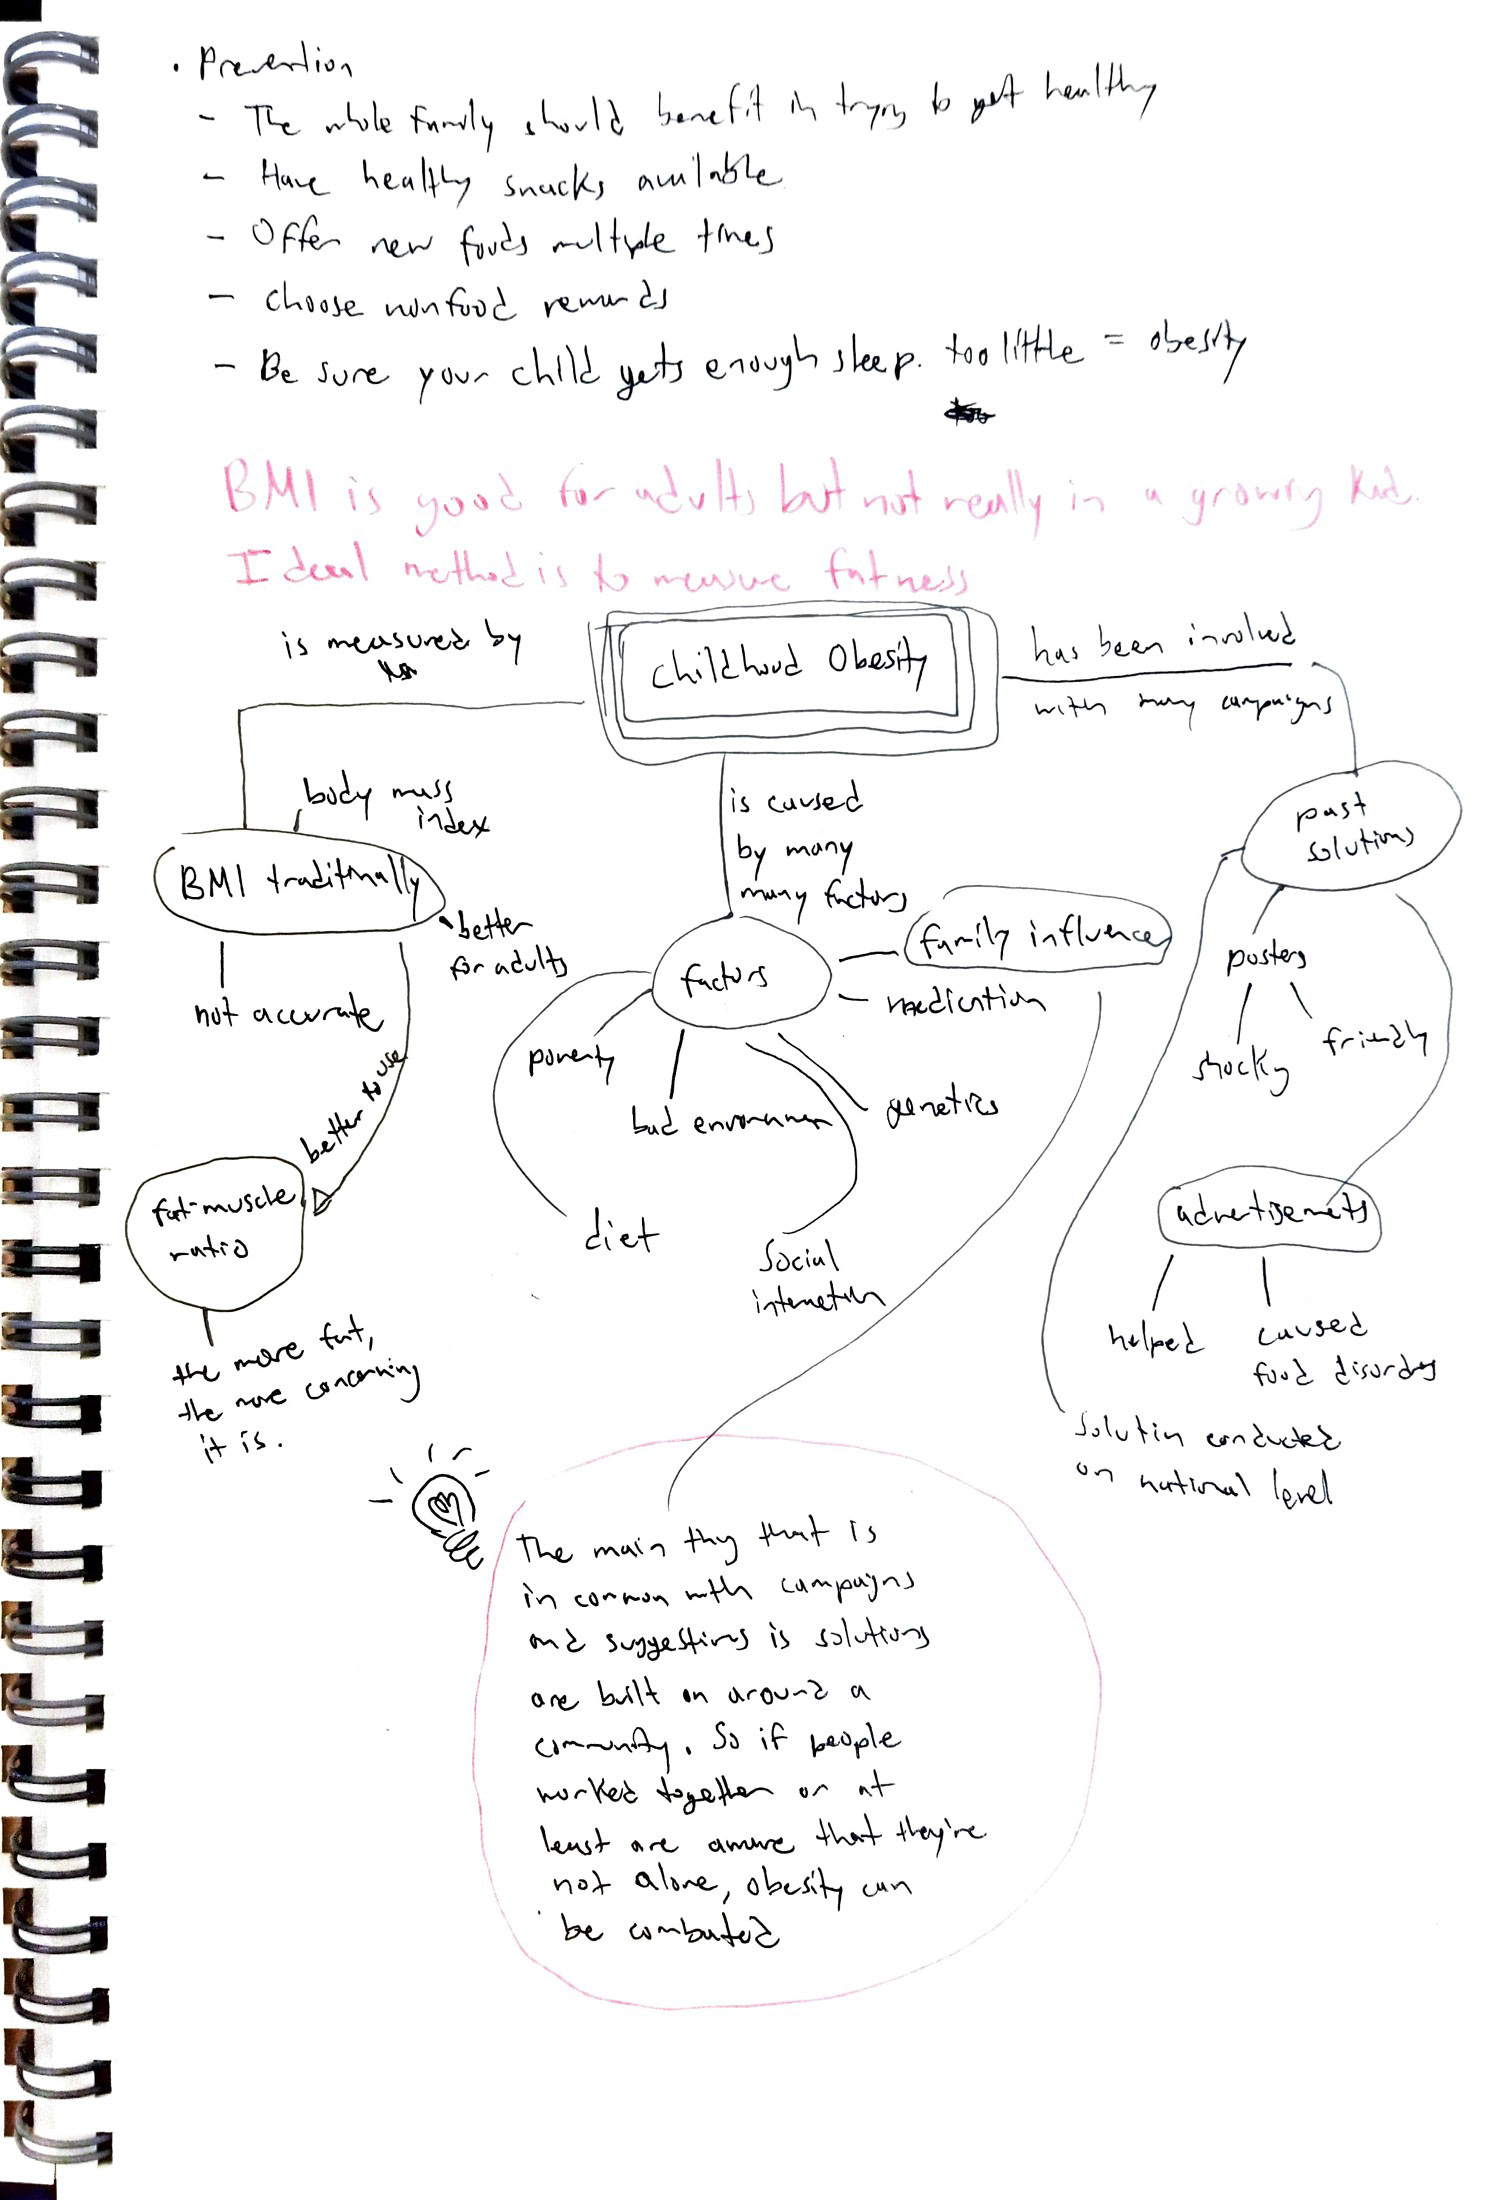 • Prevention
- The whole family should benefit in trying to get healthy
- Have healthy snacks available
- Offer new foods multiple times
- choose nonfood rewards
- Be sure your child gets enough sleep. too little = obesity
BMI is good for adults but not really in a growing kid.
Ideal method is to measure fatness
is measured by
Childhood Obesity
has been involved
with many campaigns
body mass
index
BMI traditinally
better
for adults
not accurate
better to use
fat-muscle
ratio
the more fat,
the more concerning
it is.
is caused
by many
many factors
factors
family influence
medication
poverty
bad
genetics
diet
Social
interaction
past
solutions
posters
shocking
friendly
advertisements
helped
caused
food disorders
solution conducted
on national level
The main thing that is
in common with campaigns
and suggestions is solutions
are built on around a
community. So if people
worked together or at
least are aware that they're
not alone, obesity can
be combated